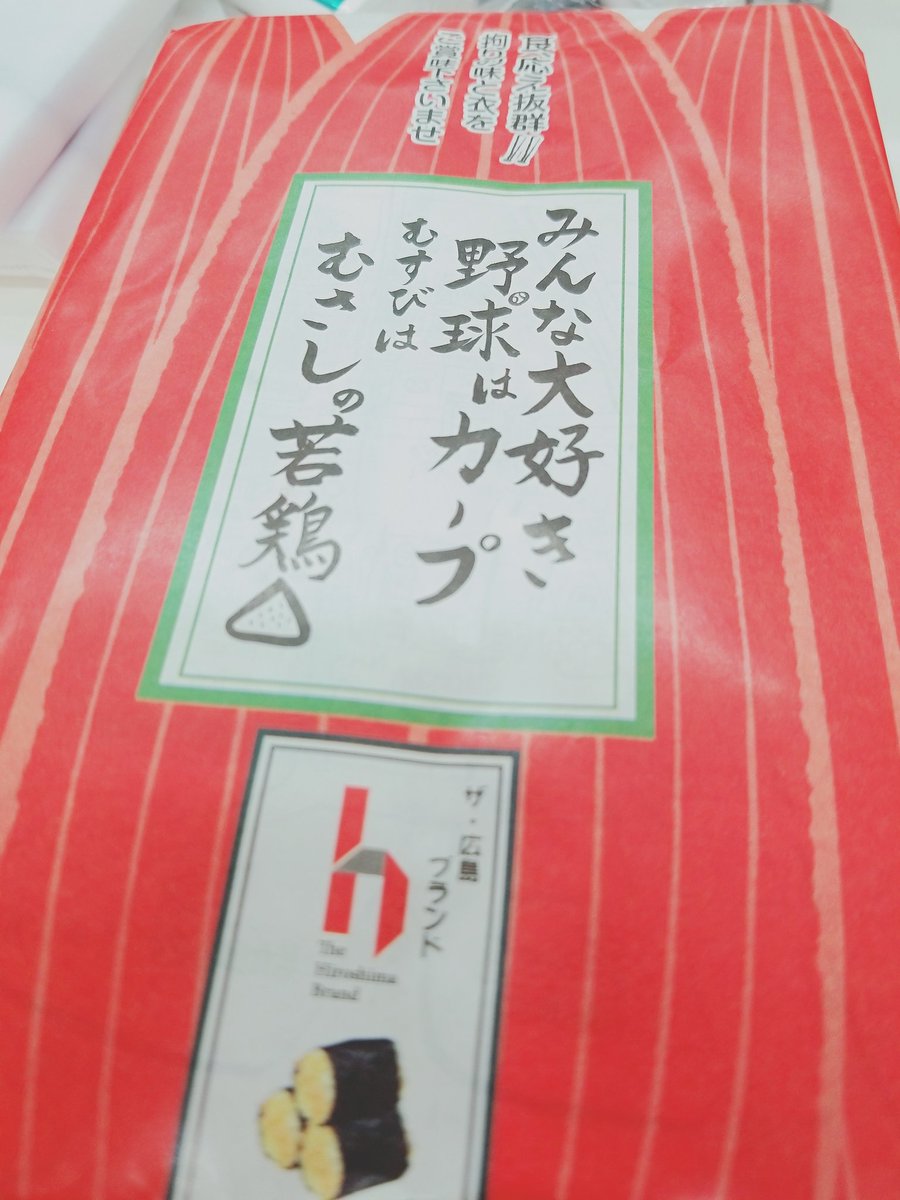 食べ応え抜群!!
拘りの味と衣を
ご賞味下さいませ
みんな大好き
野球はカープ
むすびは
むさしの若鶏
ザ・広島
ブランド
h
The
Hiroshima
Brand